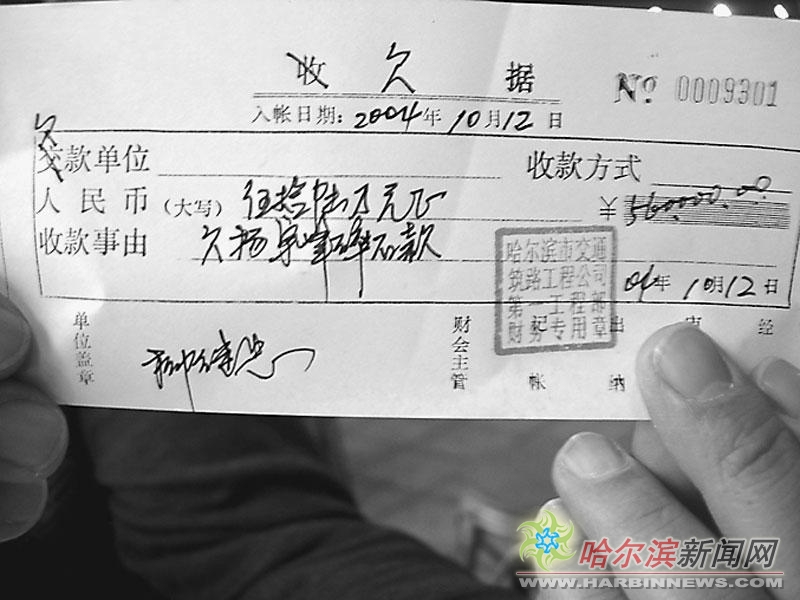 收 欠 据 No 0009301
入帐日期：2004年10月12日
欠
交款单位 收款方式
人民币（大写）伍拾陆万元正 ￥560000.00
收款事由 欠杨宗峰碎石款
哈尔滨市交通
筑路工程公司
第一工程部
财务专用章
04年10月12日
单位盖章 财会主管 记帐 出纳 审 经
哈尔滨新闻网
WWW.HARBINNEWS.COM